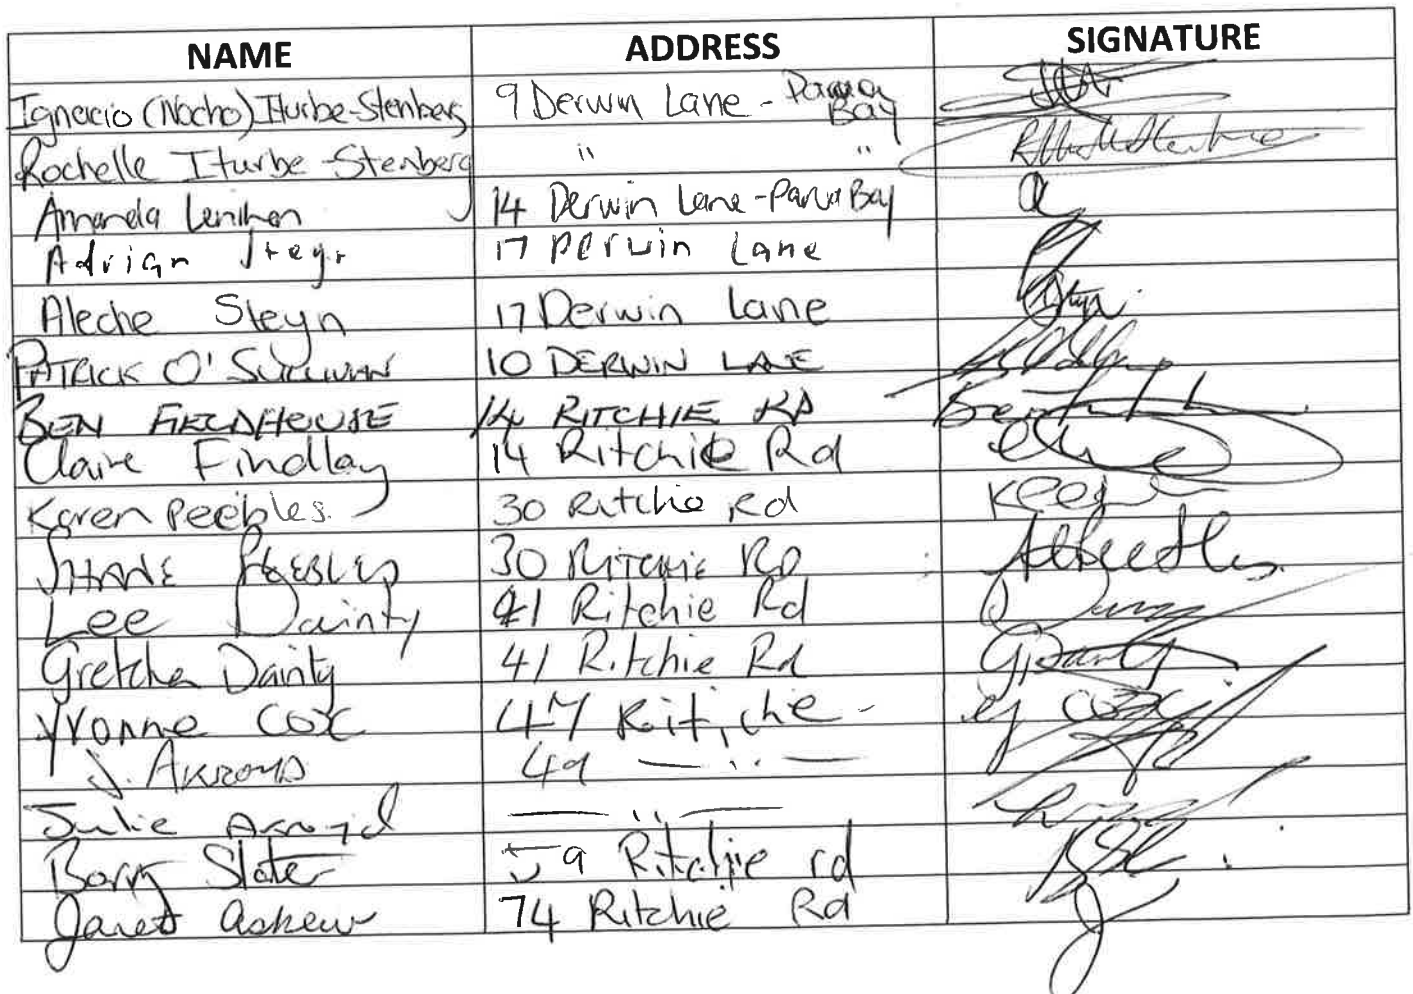 NAME ADDRESS SIGNATURE
Ignacio (Nacho) Iturbe-Stenberg 9 Derwin Lane - Parua Bay
Rochelle Iturbe-Stenberg " "
Amanda Lenihan 14 Derwin Lane - Parua Bay
Adrian Steyn 17 Derwin Lane
Aleche Steyn 17 Derwin Lane
PATRICK O'SULLIVAN 10 DERWIN LANE
BEN FIELDHOUSE 14 RITCHIE RD
Claire Findlay 14 Ritchie Rd
Karen Peebles. 30 Ritchie Rd
SHANE PEEBLES 30 RITCHIE RD
Lee Dainty 41 Ritchie Rd
Gretchen Dainty 41 Ritchie Rd G Dainty
Yvonne Cox 47 Ritchie - ey cox
J. AKROYD 49 — " —
Julie Akroyd — " —
Barry Slater 59 Ritchie rd
Janet Askew 74 Ritchie Rd